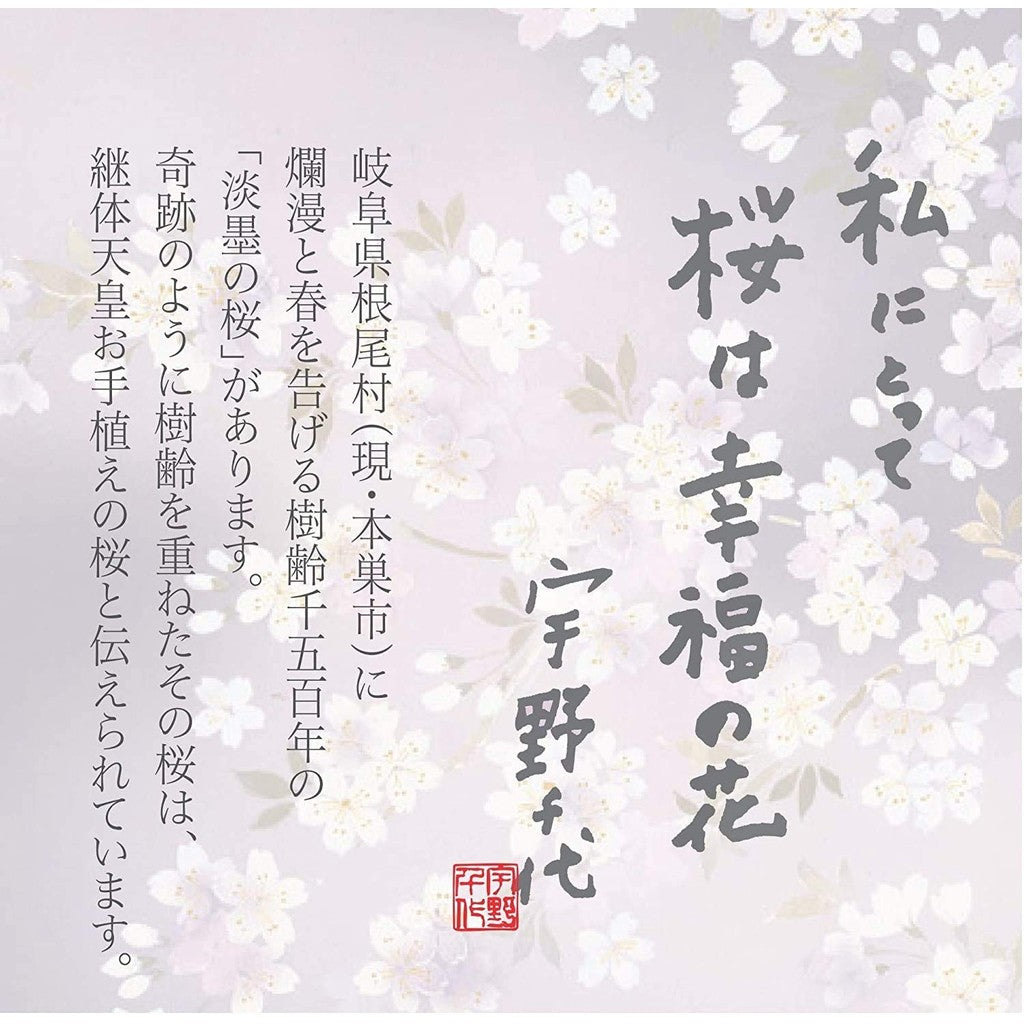 私にとって
桜は幸福の花
宇野千代
宇野
千代
岐阜県根尾村(現・本巣市)に
爛漫と春を告げる樹齢千五百年の
「淡墨の桜」があります。
奇跡のように樹齢を重ねたその桜は、
継体天皇お手植えの桜と伝えられています。